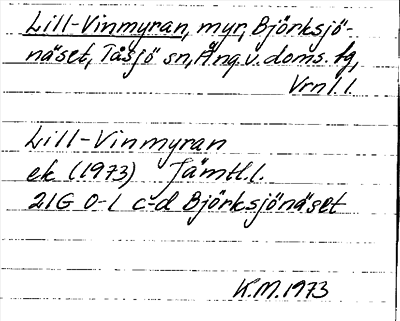 Lill-Vinmyran, myr, Björksjö-
näset, Tåsjö sn, Ång.v.doms.tg,
Vrnl.l.
Lill-Vinmyran
ek (1973) Jämtl.l.
21G 0-1 c-d Björksjönäset
K.M.1973